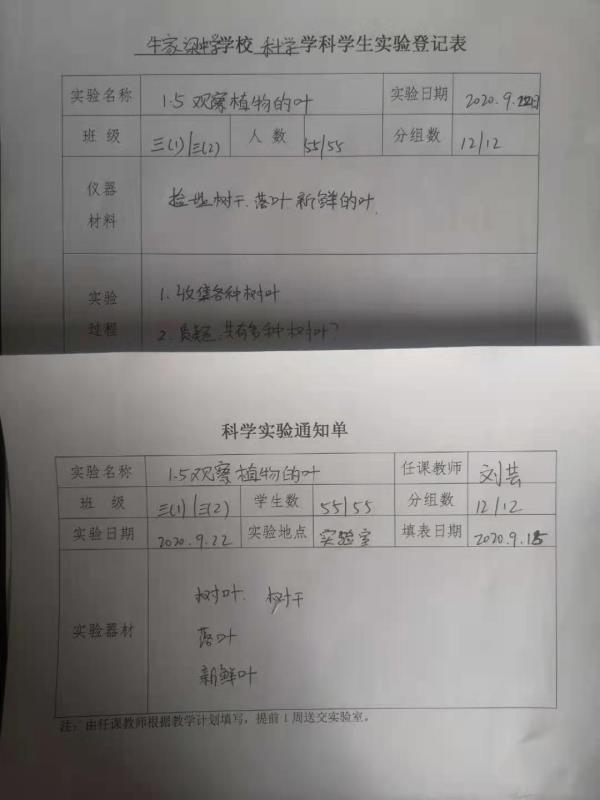 牛家梁中学学校 科学学科学生实验登记表
实验名称 1.5 观察植物的叶 实验日期 2020.9.22日
班 级 三(1)/三(2) 人 数 55/55 分组数 12/12
仪器材料 捡些树干、落叶、新鲜的叶
实验过程 1.收集各种树叶
2.质疑:共有多少种树叶?
科学实验通知单
实验名称 1.5观察植物的叶 任课教师 刘芸
班 级 三(1)/三(2) 学生数 55/55 分组数 12/12
实验日期 2020.9.22 实验地点 实验室 填表日期 2020.9.15
实验器材 树叶、树干
落叶
新鲜叶
注:由任课教师根据教学计划填写,提前1周送交实验室。